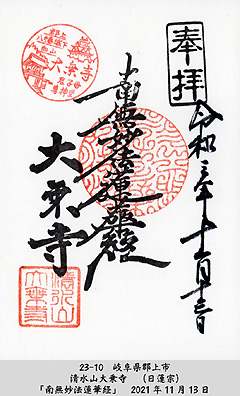 奉拝
令和三年十一月十三日
南無妙法蓮華経
大乗寺
清水山
大乗寺
23-10 岐阜県郡上市
清水山大乗寺 (日蓮宗)
「南無妙法蓮華経」 2021年11月13日